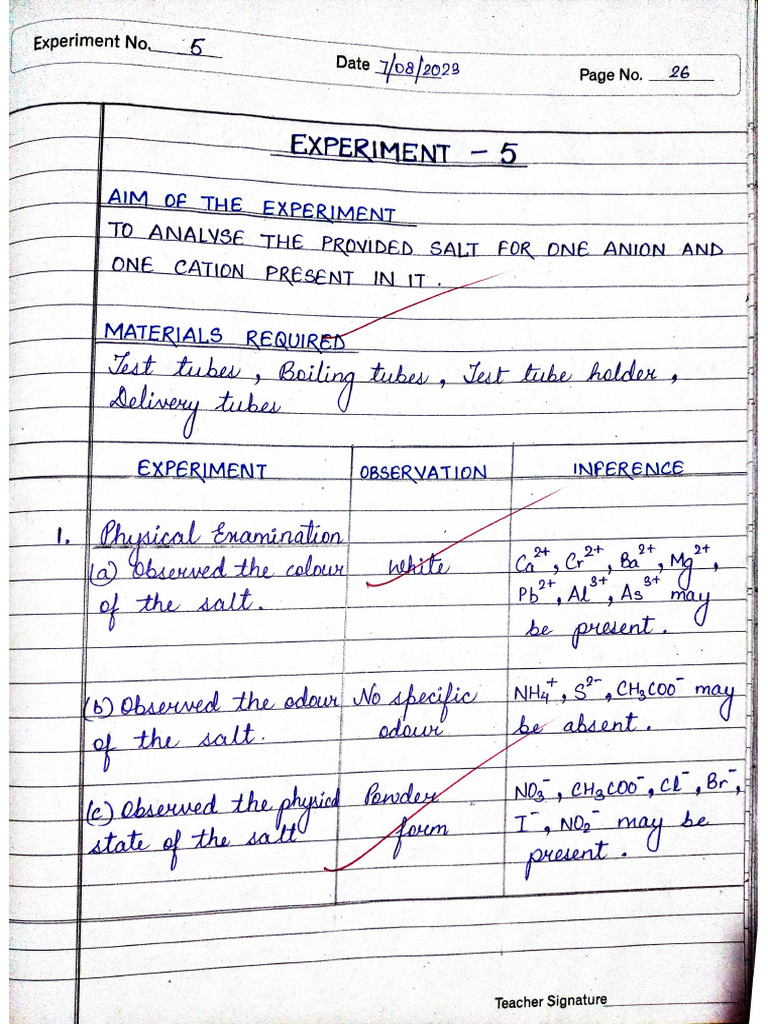 Experiment No. 5
Date 7/08/2023
Page No. 26
EXPERIMENT - 5
AIM OF THE EXPERIMENT
TO ANALYSE THE PROVIDED SALT FOR ONE ANION AND
ONE CATION PRESENT IN IT.
MATERIALS REQUIRED
Test tubes, Boiling tubes, Test tube holder,
Delivery tubes
EXPERIMENT OBSERVATION INFERENCE
1. Physical Examination
(a) Observed the colour White Ca²⁺, Cr²⁺, Ba²⁺, Mg²⁺,
of the salt. Pb²⁺, Al³⁺, As³⁺ may
be present.
(b) Observed the odour No specific NH₄⁺, S²⁻, CH₃COO⁻ may
of the salt. odour be absent.
(c) Observed the physical Powder NO₃⁻, CH₃COO⁻, Cl⁻, Br⁻,
state of the salt form I⁻, NO₂⁻ may be
present.
Teacher Signature